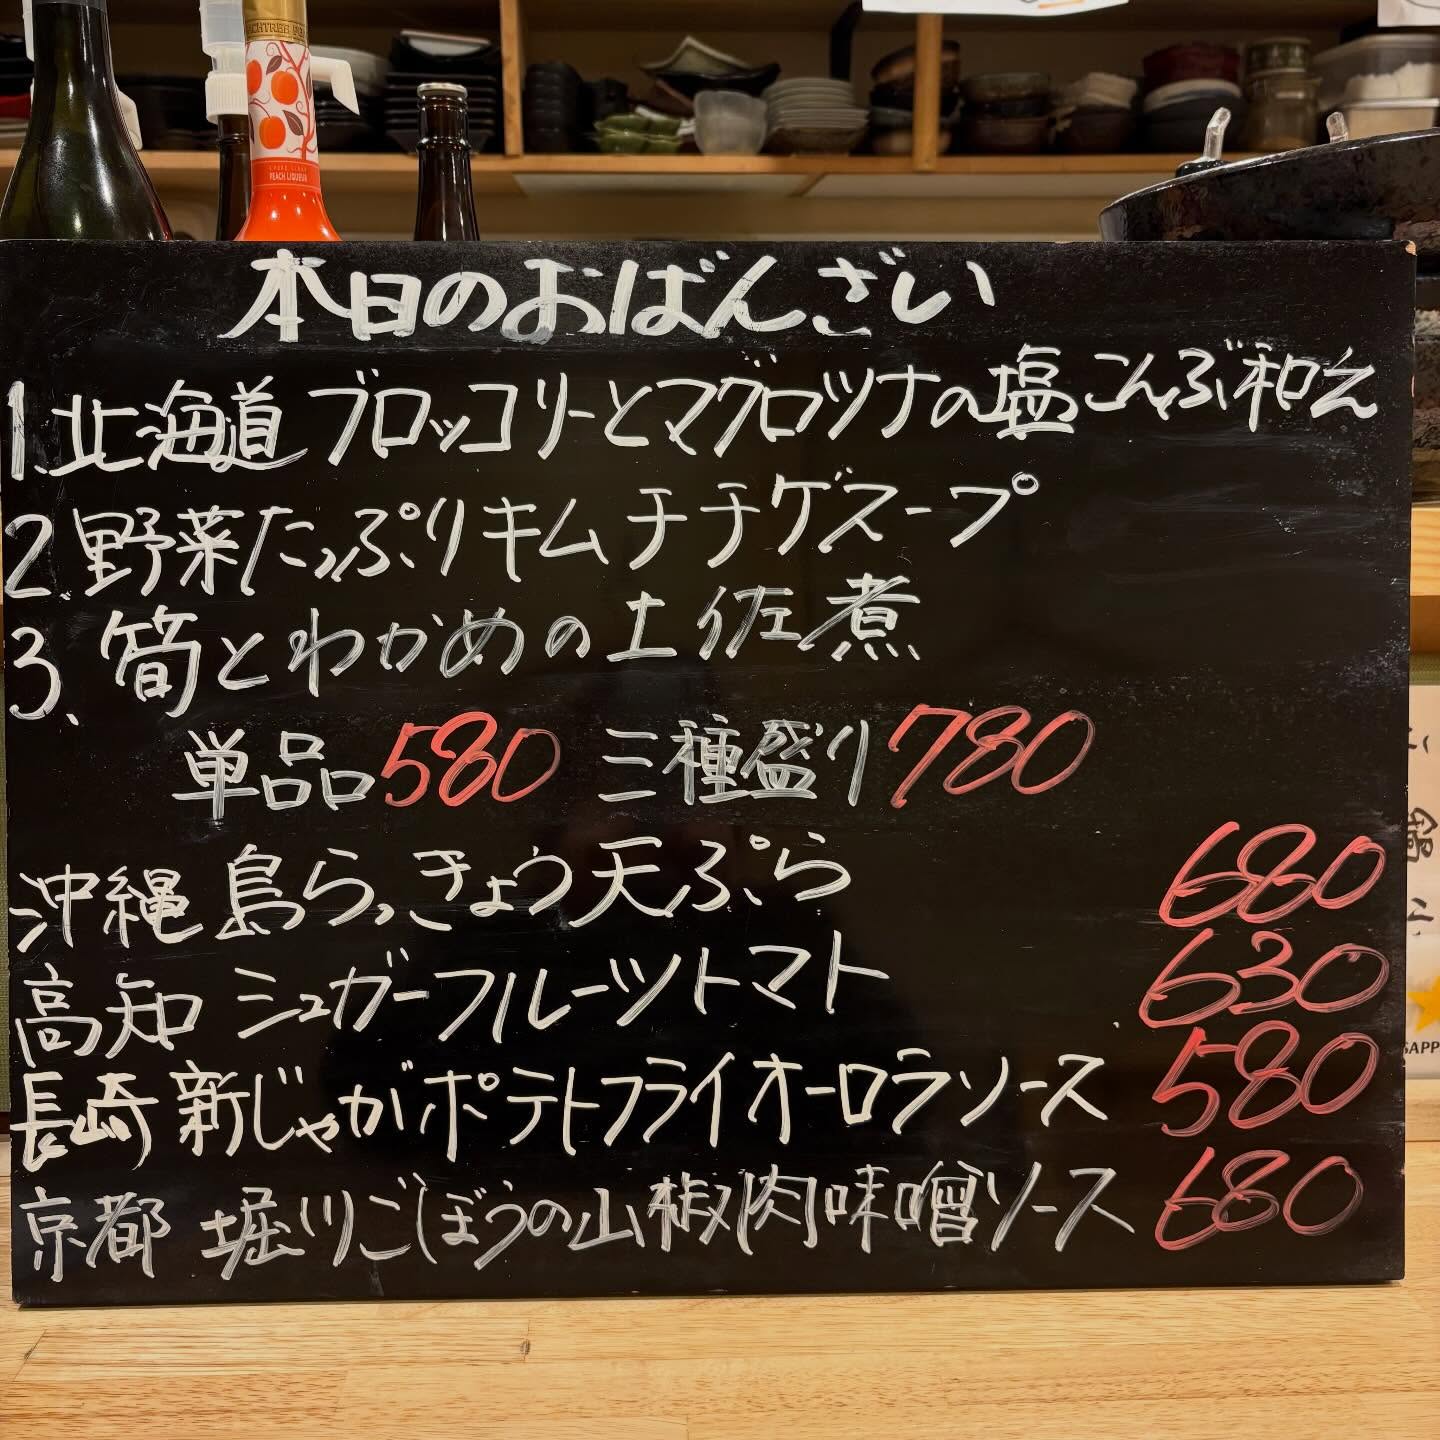 PEACH LIQUEUR
本日のおばんざい
1.北海道ブロッコリーとマグロツナの塩こんぶ和え
2.野菜たっぷりキムチチゲスープ
3、筍とわかめの土佐煮
単品580 三種盛り780
沖縄 島らっきょう天ぷら 680
高知 シュガーフルーツトマト 630
長崎 新じゃがポテトフライオーロラソース 580
京都 堀りごぼうの山椒肉味噌ソース 680